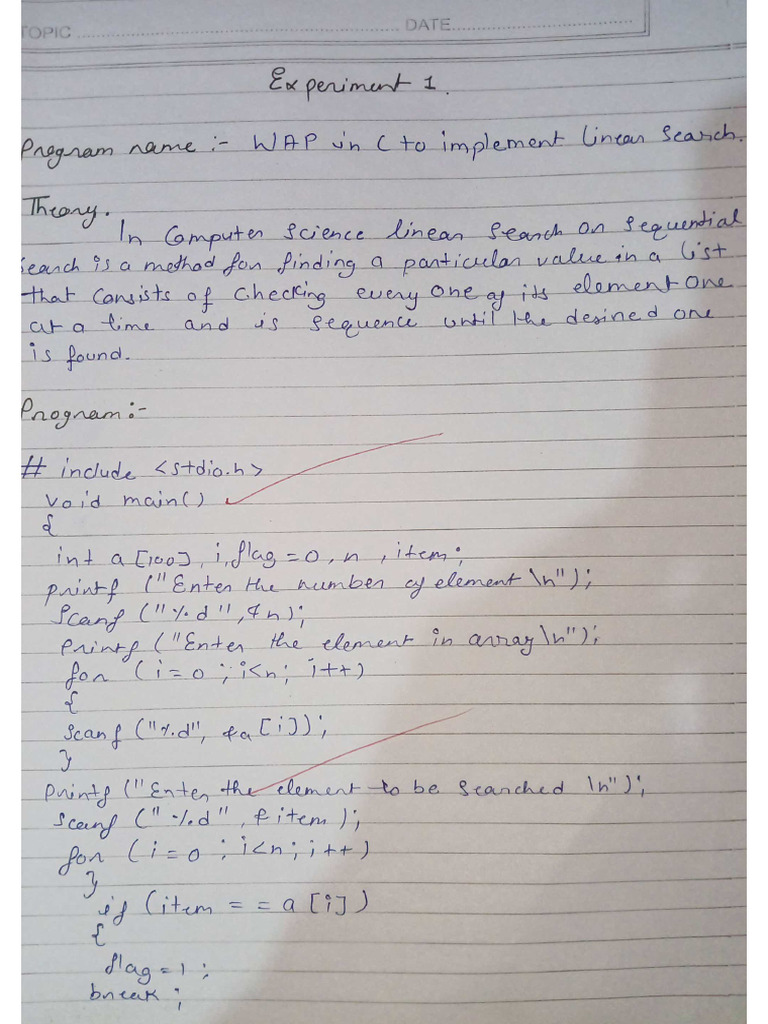 TOPIC ........ DATE........
Experiment 1.
Program name :- WAP in C to implement linear search.
Theory.
In Computer science linear search or sequential
search is a method for finding a particular value in a list
that consists of checking every one of its element one
at a time and is sequence until the desired one
is found.
Program :-
# include <stdio.h>
void main()
{
int a [100], i, flag = 0, n , item;
printf ("Enter the number of element \n");
Scanf ("%d", &n);
printf ("Enter the element in array \n");
for (i = 0 ; i<n; i++)
{
scanf ("%d", &a[i]);
}
printf ("Enter the element to be searched \n");
scanf ("%d", &item);
for (i = 0 ; i<n; i++)
}
if (item == a [i])
{
flag = 1 ;
break ;